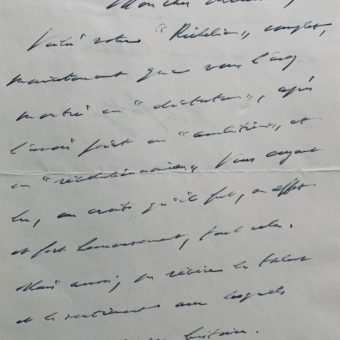 Mon cher
Voilà votre "Richelieu", complet,
maintenant que vous l'avez
montré en "dictateur", après
l'avoir peint en "ambitieux", et
en "révolutionnaire". Vous ayant
lu, on croit qu'il fut, en effet
et fort heureusement, tout cela.
Mais aussi, on révère le talent
et le sentiment avec lesquels
histoire.